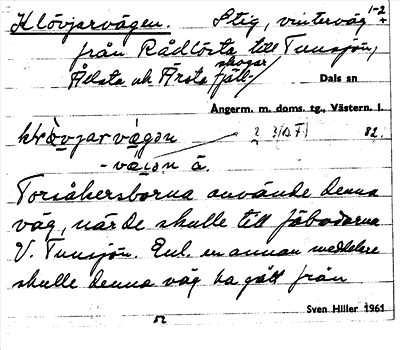 Klövjarvägen. Stig, vinterväg 1-2
från Rådlösta till Tunsjön,
skogar
Ålsta och Ärsta fjäll/
Dals sn
Ångerm. m. doms. tg., Västern. l.
82.
-
Torsåkersborna använde denna
väg, när de skulle till fäbodarna
V. Tunsjön. Enl. en annan meddelare
skulle denna väg ha gått från
Sven Hiller 1961